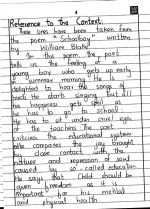 Reference to the Context:
These lines have been taken from
the poem "Schoolboy" written
by William Blake
In this poem the poet
tells us the feeling of a
young boy who gets up early
in summer morning. He is
delighted to hear the songs of
birds. He starts singing. But all
his happiness gets spoil as
he has to go to school.
He has to sit under cruel eyes
of the teachers. The poet
criticizes the educational system
who compares the joy brought
by close contact with the
nature and repression of soul
caused by so-called education.
He says that child should be
given freedom as it is
important for his mental
and physical health